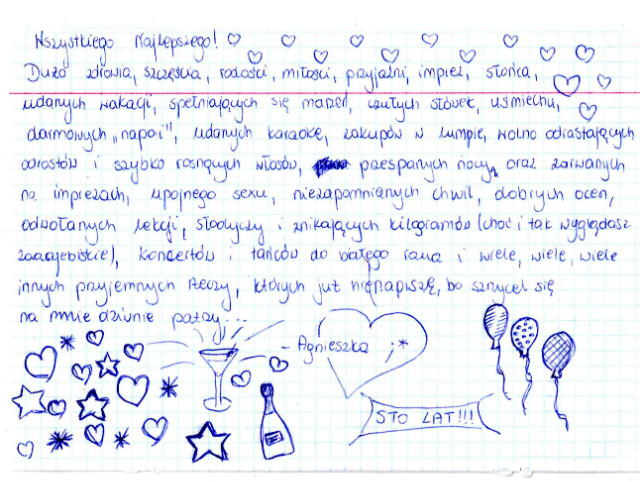 Wszystkiego Najlepszego!
Dużo zdrowia, szczęścia, radości, miłości, przyjaźni, imprez, słońca,
udanych wakacji, spełniających się marzeń, czułych słówek, uśmiechu,
darmowych „napoi", udanych karaoke, zakupów w lumpie, wolno odrastających
odrostów i szybko rosnących włosów, przespanych nocy, oraz zarwanych
na imprezach, upojnego sexu, niezapomnianych chwil, dobrych ocen,
odwołanych lekcji, słodyczy i znikających kilogramów (choć i tak wyglądasz
zaaajebiście), koncertów i tańców do białego rana i wiele, wiele, wiele
innych przyjemnych rzeczy, których już nie napiszę, bo sznycel się
na mnie dziwnie patrzy...
- Agnieszka ;*
STO LAT!!!